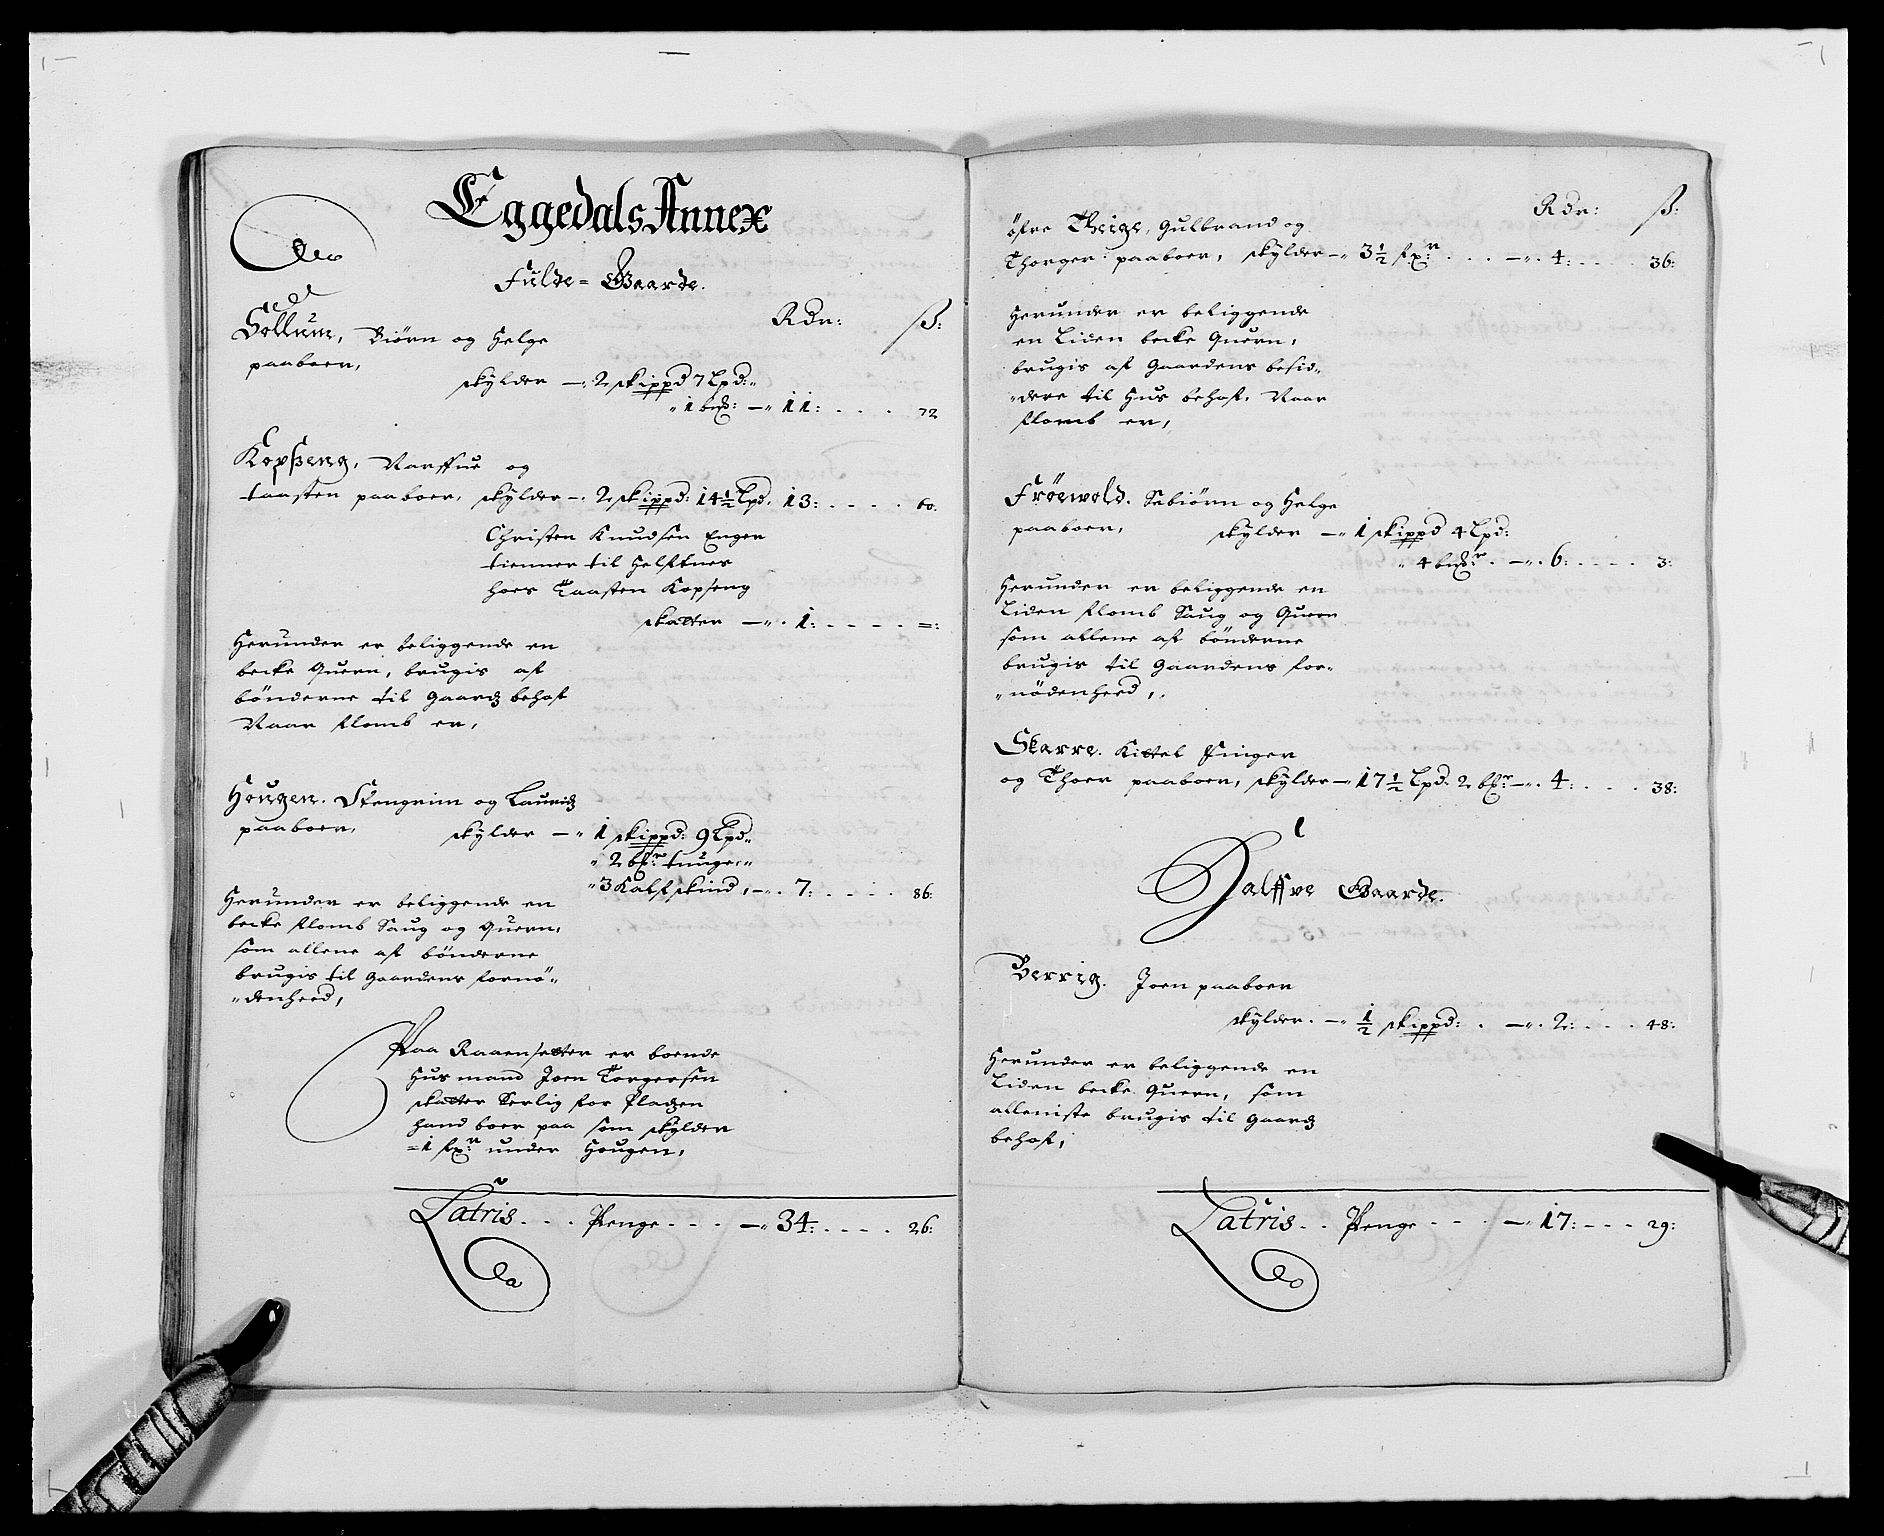 Eggedals Annex
Fulde = Gaarde.
Rdr: ß:
Sollum, Biörn og Helge
paaboer,
skylder —. 2 skippd 7 Lpd:
1 — 11: . . . . 72
Kopßeng, Narffue og
taasten paaboer, skylder —. 2 skippd: 14½ Lpd. 13: . . . . 60.
Christen Knudsen Enger
tienner til Helfftnes
hoes Taasten Kopseng
skatter — . 1: . . . . =:
Herunder er beliggende en
becke Quern, brugis aff
bönderne til Gaardz behof
Naar flomb er,
Hougen. Stengrim og Lauridz
paaboer, skylder — 1 skippd: 9 Lpd
2 tunge
3 Kalfskind, — . 7: . . . . 86:
Herunder er beliggende en
becke flomb Saug og Quern,
som allene aff bönderne
brugis til Gaardens fornö-
denheed,
Paa Raaensetter er boende
Husmand Joen Torgersen
skatter Serlig for Pladzen
hand boer paa som skylder
1 under Hougen,
Latris . . . Penge . . . — 34: . . . . 26:
Rdr: ß:
öfre Theige, Gulbrand og
Thorger paaboer, skylder — 3½ . . . — . 4: . . . . 36:
Herunder er beliggende
en Liden becke Quern,
brugis aff Gaardens besid-
dere til Hus behof, Naar
flomb er,
Fröewold. Sebiörn og Helge
paaboer, skylder — 1 skippd 4 Lpd:
4 . — . 6: . . . . 3:
Herunder er beliggende en
Liden flomb Saug og Quern
som allene aff bönderne
brugis til Gaardens for-
nödenheed,
Skarre. Kittel Finger
og Thoer paaboer, skylder — 17½ Lpd. 2 — . 4: . . . 38:
Halffve Gaarde.
Berrig. Joen paaboer
skylder. — ½ skippd: . — . 2: . . . 48:
Herunder er beliggende en
Liden becke Quern, som
alleniste brugis til Gaardz
behof,
Latris . . Penge . . . — 17: . . . 29: